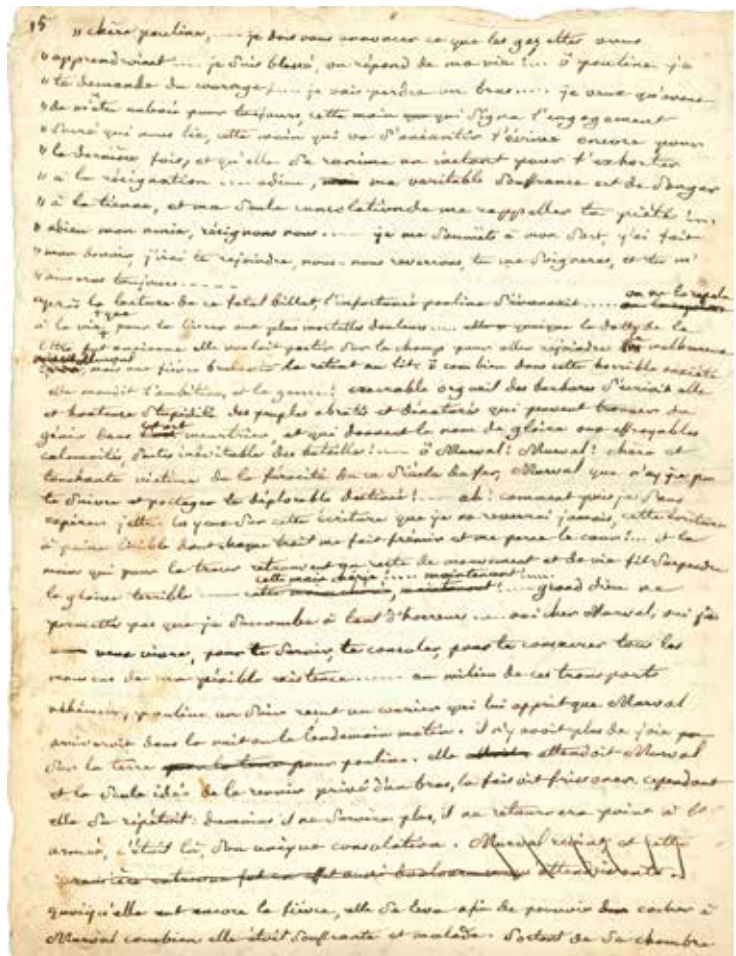 15 " chère pauline, .... je dois vous annoncer ce que les gazettes vous
" apprendroient .... je suis blessé, on répond de ma vie !... ô pauline je
" te demande du courage !.... je vais perdre un bras ..... je veux qu'avant
" de m'être enlevée pour toujours, cette main qui signa l'engagement
" sacré qui nous lie, cette main qui va s'anéantir t'écrive encore pour
" la dernière fois, et qu'elle se ranime un instant pour t'exhorter
" à la résignation .... adieu, ma veritable souffrance est de songer
" à la tienne, et ma seule consolation de me rappeller ta piété !...
" adieu mon amie, résignons nous ..... je me soumets à mon sort, j'ai fait
" mon devoir, j'irai te rejoindre, nous nous reverrons, tu me soigneras, et tu m'
" aimeras toujours .....
après la lecture de ce fatal billet, l'infortunée pauline s'évanouit ..... on ne la rapela
à la vie que pour la livrer aux plus mortelles douleurs .... quoique la date de la
lettre fut ancienne elle vouloit partir sur le champ pour aller rejoindre
mais une fièvre brulante la retint au lit. ô combien dans cette horrible anxiété
elle maudit l'ambition, et la guerre ! execrable orgueil des barbares s'écrioit elle
et honteuse stupidité des peuples abrutis et dénaturés qui peuvent trouver du
génie dans cet art meurtrier, et qui donnent le nom de gloire aux effroyables
calamités, suites inévitables des batailles !.... ô Murval ! Murval ! chère et
touchante victime de la férocité de ce siècle de fer, Murval que n'ay-je pu
te suivre et partager ta déplorable destinée !.... ah ! comment puis je sans
expirer jetter les yeux sur cette écriture que je ne reverrai jamais, cette écriture
à peine lisible dont chaque trait me fait frémir et me perce le cœur !... et la
main qui pour la tracer retrouvoit un reste de mouvement et de vie fut
la gloire terrible ..... cette main chérie !.... maintenant !.... grand dieu ne
permettez pas que je succombe à tant d'horreurs .... oui cher Murval, oui j'
veux vivre, pour te servir, te consoler, pour te consacrer tous les
momens de ma pénible existence ..... au milieu de ces transports
véhémens, pauline un soir reçut un courier qui lui apprit que Murval
arriveroit dans la nuit ou le lendemain matin. il n'y avoit plus de joie
sur la terre pour pauline. elle attendoit Murval
et la seule idée de le revoir privé d'un bras, la faisoit frissoner. cependant
elle se répétoit : du moins il ne servira plus, il ne retournera point à l'
armée, c'étoit là, son unique consolation. Murval revint et cette
première entrevue fut en effet aussi douloureuse attendrissante.
quoiqu'elle eut encore la fièvre, elle se leva afin de pouvoir cacher à
Murval combien elle étoit souffrante et malade. sortant de sa chambre